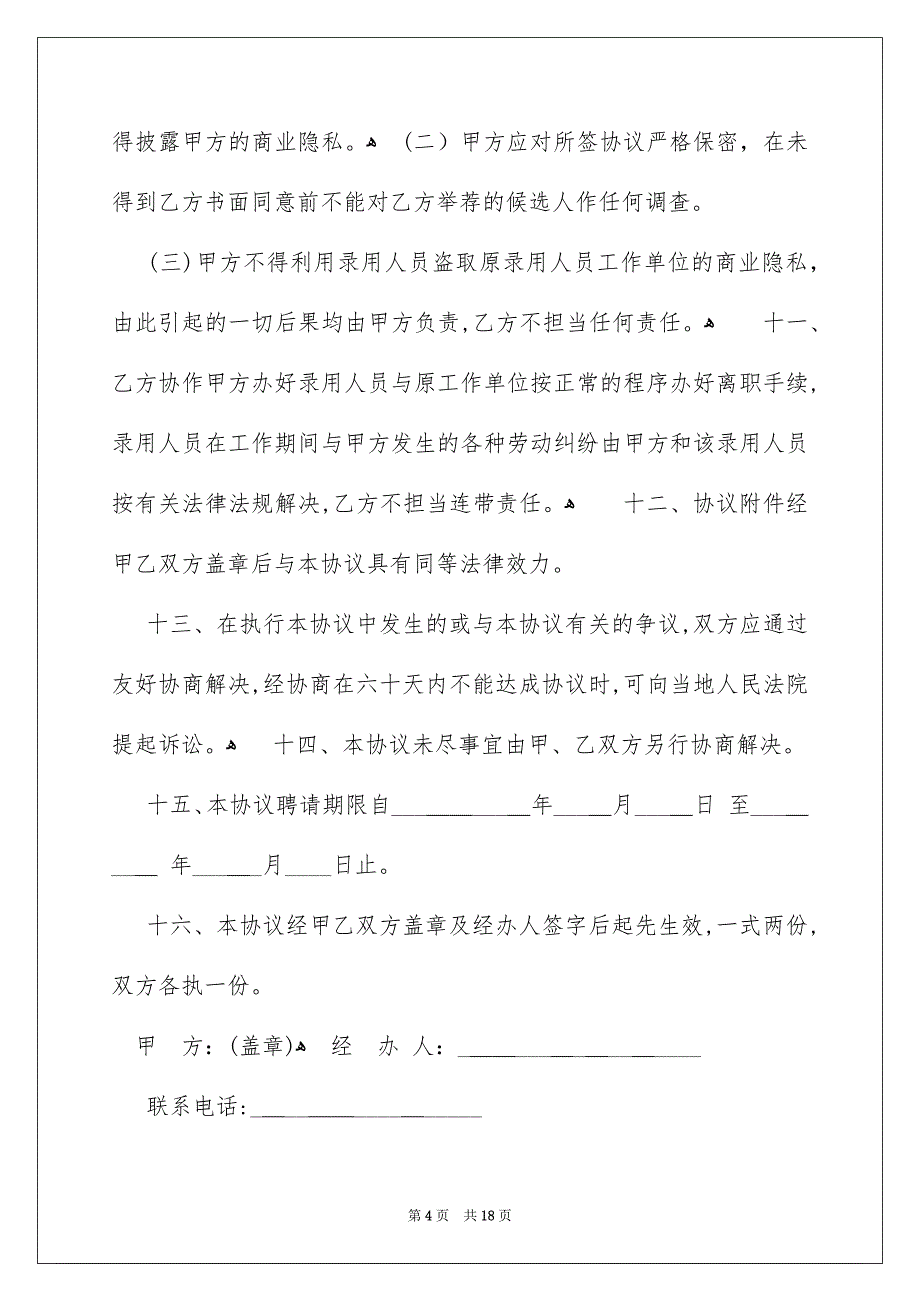 得披露甲方的商业隐私。ﻫ (二）甲方应对所签协议严格保密，在未
得到乙方书面同意前不能对乙方举荐的候选人作任何调查。
(三)甲方不得利用录用人员盗取原录用人员工作单位的商业隐私，
由此引起的一切后果均由甲方负责,乙方不担当任何责任。ﻫ 十一、
乙方协作甲方办好录用人员与原工作单位按正常的程序办好离职手续,
录用人员在工作期间与甲方发生的各种劳动纠纷由甲方和该录用人员
按有关法律法规解决,乙方不担当连带责任。ﻫ 十二、协议附件经
甲乙双方盖章后与本协议具有同等法律效力。
十三、在执行本协议中发生的或与本协议有关的争议,双方应通过
友好协商解决,经协商在六十天内不能达成协议时,可向当地人民法院
提起诉讼。ﻫ 十四、本协议未尽事宜由甲、乙双方另行协商解决。
十五、本协议聘请期限自____________年_____月_____日 至_____
____ 年______月____日止。
十六、本协议经甲乙双方盖章及经办人签字后起先生效,一式两份,
双方各执一份。
甲 方：(盖章)ﻫ 经 办 人：_____________________
联系电话:____________________
第 4 页 共 18 页